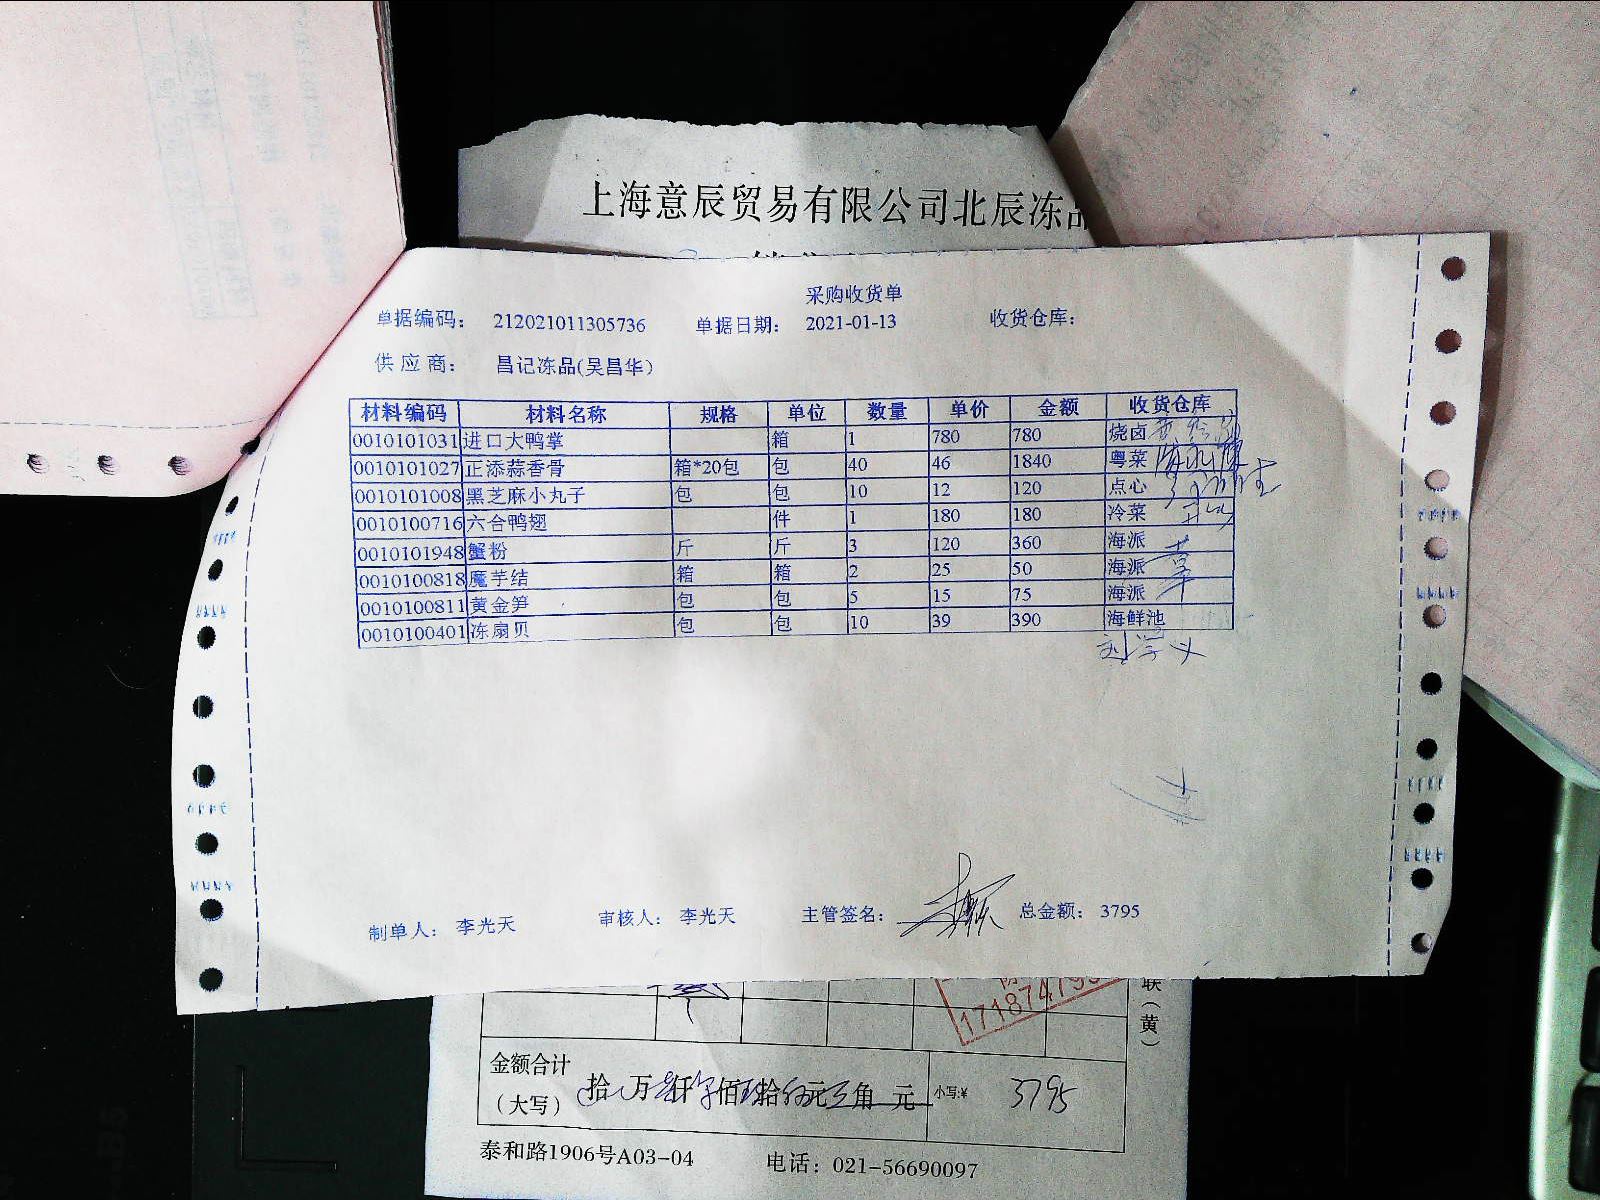 上海意辰贸易有限公司北辰冻品
采购收货单
单据编码： 212021011305736 单据日期： 2021-01-13 收货仓库：
供应商： 昌记冻品(吴昌华)
材料编码 材料名称 规格 单位 数量 单价 金额 收货仓库
0010101031 进口大鸭掌 箱 1 780 780 烧卤
0010101027 正添蒜香骨 箱*20包 包 40 46 1840 粤菜
0010101008 黑芝麻小丸子 包 包 10 12 120 点心
0010100716 六合鸭翅 件 1 180 180 冷菜
0010101948 蟹粉 斤 斤 3 120 360 海派
0010100818 魔芋结 箱 箱 2 25 50 海派
0010100811 黄金笋 包 包 5 15 75 海派
0010100401 冻扇贝 包 包 10 39 390 海鲜池
刘学义
制单人： 李光天 审核人： 李光天 主管签名： 总金额： 3795
联（黄）
金额合计
（大写） 拾 万 仟 佰 拾 元 角 元 小写:¥ 3795
泰和路1906号A03-04 电话：021-56690097